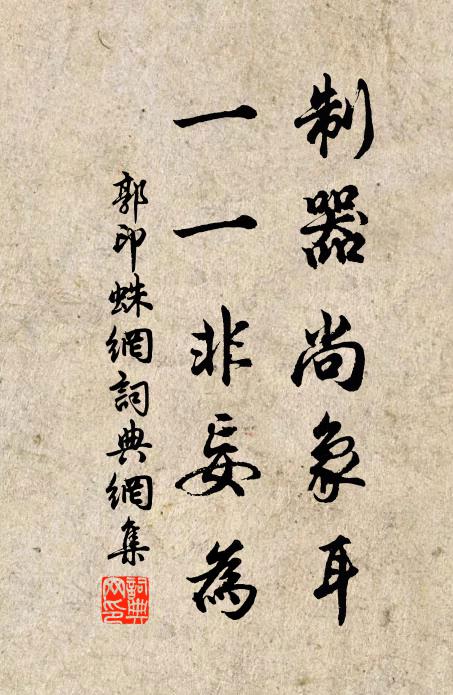 制器尚象耳
一一非妄為
郭印蛛網詞典網集
詞典網印